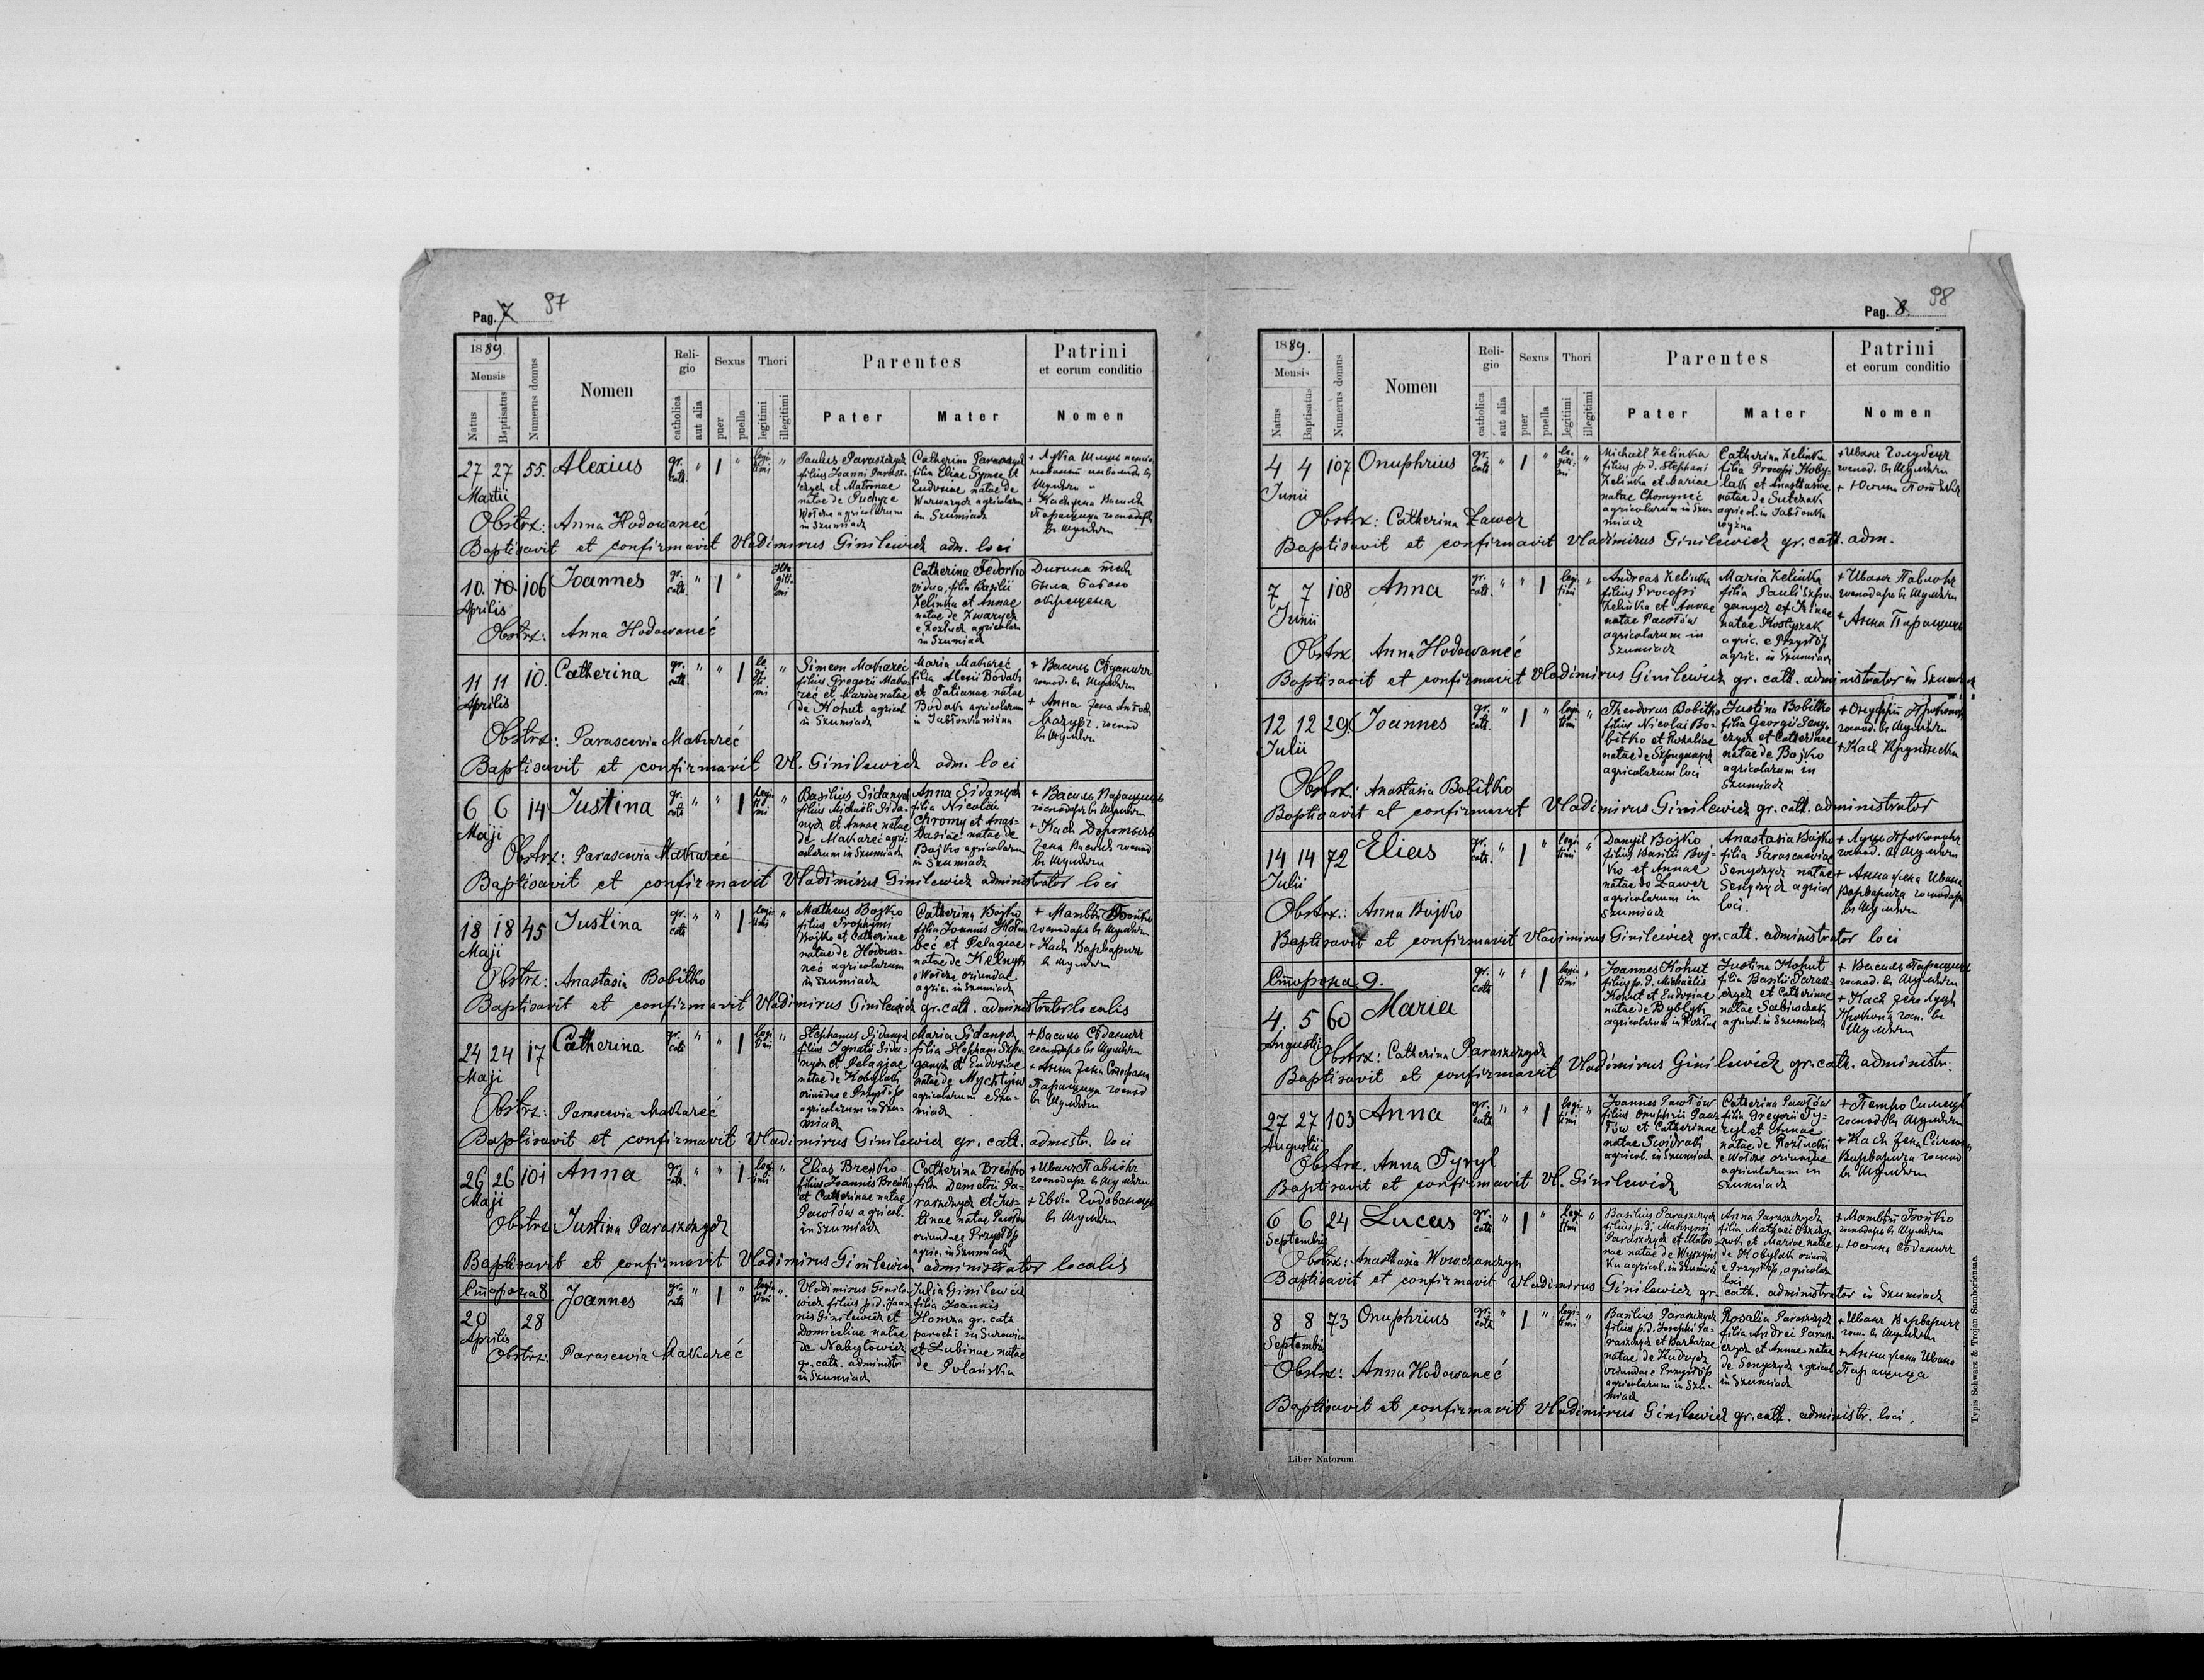 Pag. 7 97
1889.
Mensis
Natus
Baptisatus
Numerus domus
Nomen
Religio
catholica
aut alia
Sexus
puer
puella
Thori
legitimi
illegitimi
Parentes
Pater
Mater
Patrini
et eorum conditio
Nomen
27 27 55. Alexius
Martii
gr. cath. " 1 " legitimi "
Paulus Paraszczych
filius Joanni Parasz-
czych et Matronae
natae de Puchyr e
Wołcze agricolarum
in Szumiacz
Catherina Paraszczych
filia Eliae Symec et
Eudoxiae natae de
Warwarycz agricolarum
in Szumiacz
Obstrx: Anna Hodowaneć
Baptisavit et confirmavit Vladimirus Ginilewicz adm. loci
10. 10 106 Joannes
Aprilis
gr. cath. " 1 " Illegitimi
Catherina Fedorko
vidua, filia Basilii
Zelinka et Annae
natae de Zwarycz
e Rozłucz agricolarum
in Szumiacz
Дитина тая
была бабою
обрещена
Obstrx: Anna Hodowaneć
11 11 10. Catherina
Aprilis
gr. cath. " " 1 legitimi "
Simeon Makareć
filius Gregorii Maka-
reć et Mariae natae
de Kohut agricol
in Szumiacz
Maria Makareć
filia Alexii Bodak
et Tatianae natae
Bodak agricolarum
in Jabłonka niżna
+ Василь Сѣданичъ
Obstrx: Parascevia Makareć
Baptisavit et confirmavit Vl. Ginilewicz adm. loci
6 6 14 Justina
Maji
gr. cath " " 1 legitimi "
Basilius Sidanycz
filius Michaeli Sida-
nycz et Annae natae
de Makareć agri-
colarum in Szumiacz
Anna Sidanycz
filia Nicolai
Chromy et Anas-
tasiae natae de
Bojko agricolarum
in Szumiacz
+ Василь Паращичъ
господарь въ Шумячи
Obstrx: Parascevia Makareć
Baptisavit et confirmavit Vladimirus Ginilewicz administrator loci
18 18 45 Justina
Maji
gr. cath " " 1 legitimi "
Matheus Bojko
filius Trophymi
Bojko et Catherinae
natae de Hodowa-
neć agricolarum
in Szumiacz
Catherina Bojko
filia Joannis Hołu-
beć et Pelagiae
e Wołcze oriundae
agric. in Szumiacz
+ Матвѣй Бойко
господарь въ Шумячи
+ Кась Варваричъ
въ Шумячи
Obstrx: Anastasia Bobitko
Baptisavit et confirmavit Vladimirus Ginilewicz gr. cath. administrator localis
24 24 17 Catherina
Maji
gr. cath " " 1 legitimi "
Stephanus Sidanycz
filius Ignatii Sida-
nycz et Pelagiae
natae de Kobylak
oriundae e Przysłóp
agricolarum in Szu-
miacz
Maria Sidanycz
filia Stephani
et Eudoxiae
agricolarum e Szu-
miacz
+ Василь Сѣданичъ
господарь въ Шумячи
+ Анна жена Стефана
Паращича господ
въ Шумячи
Obstrx: Parascevia Makareć
Baptisavit et confirmavit Vladimirus Ginilewicz gr. cath. admistr. loci
26 26 101 Anna
Maji
gr. cath. " " 1 legitimi "
Elias Breńko
filius Joannis Breńko
et Catherinae natae
Pawłów agricol.
in Szumiacz
Catherina Breńko
filia Demetrii Pa-
raszczych et Jus-
tinae natae Pawłów
oriundae e Przysłóp
agric. in Szumiacz
+ Иванъ Павлôвъ
господарь въ Шумячи
+ Евка Годованець
въ Шумячи
Obstrx: Justina Paraszczych
Baptisavit et confirmavit Vladimirus Ginilewicz administrator localis
Сторона 8
20 28 Joannes
Aprilis
gr. cath " 1 " legitimi "
Vladimirus Ginile-
wicz filius p.d. Joan-
nis Ginilewicz et
Domiceliae natae
de Nabytowicz
gr. cath. administr
in Szumiacz
Julia Ginilewicz
filia Joannis
Homza gr. cath
parochi in Surowica
et Lubinae natae
de Polańska
Obstrx: Parascevia Makareć
Pag. 8. 98
1889.
Mensis
Natus
Baptisatus
Numerus domus
Nomen
Religio
catholica
aut alia
Sexus
puer
puella
Thori
legitimi
illegitimi
Parentes
Pater
Mater
Patrini
et eorum conditio
Nomen
4 4 107 Onuphrius
Junii
gr. cath. " 1 " legitimi "
Michaël Zelinka
filius p.d. Stephani
Zelinka et Mariae
natae Chomyneć
agricolarum in Szu-
miacz
Catherina Zelinka
filia Procopi Koby-
lak et Anastasiae
natae de Sutczak
agricol. in Jabłonka
wyżna
+ Иванъ Голубецъ
господ. въ Шумячи
Obstrx: Catherina Ławer
Baptisavit et confirmavit Vladimirus Ginilewicz gr. cath. adm.
7 7 108 Anna
Junii
gr. cath. " " 1 legitimi "
Andreas Zelinka
filius Procopi
Zelinka et Annae
natae Pawłów
agricolarum in
Szumiacz
Maria Zelinka
filia Pauli
et Irinae
natae Kostyszak
agric. e Przysłóp
agric. in Szumiacz
+ Иванъ Павлôвъ
господарь въ Шумячи
+ Анна Паращичъ
Obstrx Anna Hodowaneć
Baptisavit et confirmavit Vladimirus Ginilewicz gr. cath. administrator in Szumiacz
12 12 29. Joannes
Julii
gr. cath. " 1 " legitimi "
Theodorus Bobitko
filius Nicolai Bo-
bitko et Rozaliae
agricolarum loci
Justina Bobitko
filia Georgii Seny-
czych et Catherinae
natae de Bojko
agricolarum in
Szumiacz
Obstrx: Anastasia Bobitko
Baptisavit et confirmavit Vladimirus Ginilewicz gr. cath. administrator
14 14 72 Elias
Julii
gr. cath. " 1 " legitimi "
Danyil Bojko
filius Basilii Boj-
ko et Annae
natae de Ławer
agricolarum in
Szumiacz
Anastasia Bojko
filia Parasceviae
Senyczych natae
Senyczych agricol
loci.
+ Анна жена Ивана
Варварича господаря
въ Шумячи
Obstrx.: Anna Bojko
Baptisavit et confirmavit Vladimirus Ginilewicz gr. cath. administrator loci
Сторона 9.
4. 5 60 Maria
Augustii
gr. cath " " 1 legitimi "
Joannes Kohut
filius p.d. Michaëlis
Kohut et Eudoxiae
natae de Dyblyk
agricolarum in Rozłucz
Justina Kohut
filia Basilii Parasz-
czych et Catherinae
agricol. in Szumiacz
+ Василь Паращичъ
господ. въ Шумячи
Obstrx: Catherina Paraszczych
Baptisavit et confirmavit Vladimirus Ginilewicz gr. cath. administr.
27 27 103 Anna
Augustii
gr. cath " " 1 legitimi "
Joannes Pawłów
filius Onuphrii Paw-
łów et Catherinae
natae Swidrak
agricol. in Szumiacz
Catherina Pawłów
filia Gregorii Ty-
ryl et Annae
e Wołcze oriundae
agricolarum in
Szumiacz
Obstrx. Anna Tyryl
Baptisavit et confirmavit Vl. Ginilewicz
6 6 24 Lucas
Septembris
gr. cath. " 1 " legitimi "
Basilius Paraszczych
filius p.d. Maksymi
Paraszczych et Matro-
nae natae de Wyszyns-
ka agricol. in Szumiacz
Anna Paraszczych
et Mariae natae
de Kobylak oriund
e Przysłóp, agricolar
loci
+ Матвѣй Бойко
господарь въ Шумячи
+ Юстина Сѣданичъ
Obstrx: Anastasia Worwczanczyn
Baptisavit et confirmavit Vladimirus Ginilewicz gr. cath. administrator in Szumiacz
8 8 73 Onuphrius
Septembris
gr. cath " 1 " legitimi "
Basilius Paraszczych
filius p.d. Josephi Pa-
raszczych et Barbarae
natae de Hudycz
oriundae e Przysłóp
agricolarum in Szu-
miacz
Rosalia Paraszczych
filia Andrei Parasz-
czych et Annae natae
de Senyczych agricol
in Szumiacz
+ Иванъ Варваричъ
госп. въ Шумячи
+ Анна жена Ивана
Паращича
Obstrx: Anna Hodowaneć
Baptisavit et confirmavit Vladimirus Ginilewicz gr. cath. administr. loci.
Liber Natorum.
Typis Schwarz & Trojan Samboriensae.